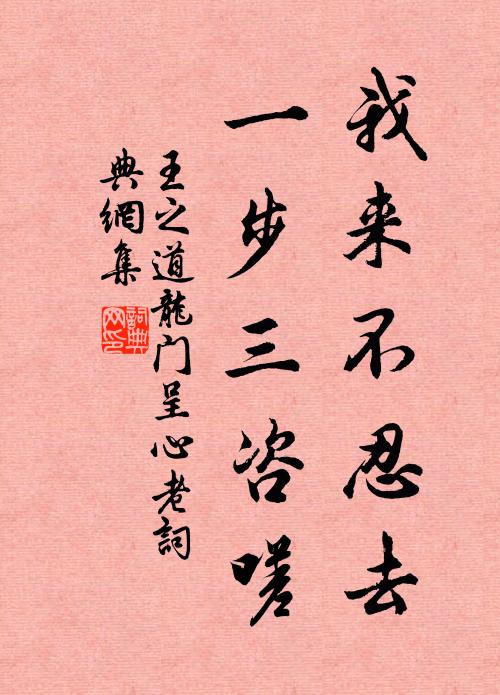 我来不忍去
一步三咨嗟
王之道龍门呈心老詞
典網集
詞典网印